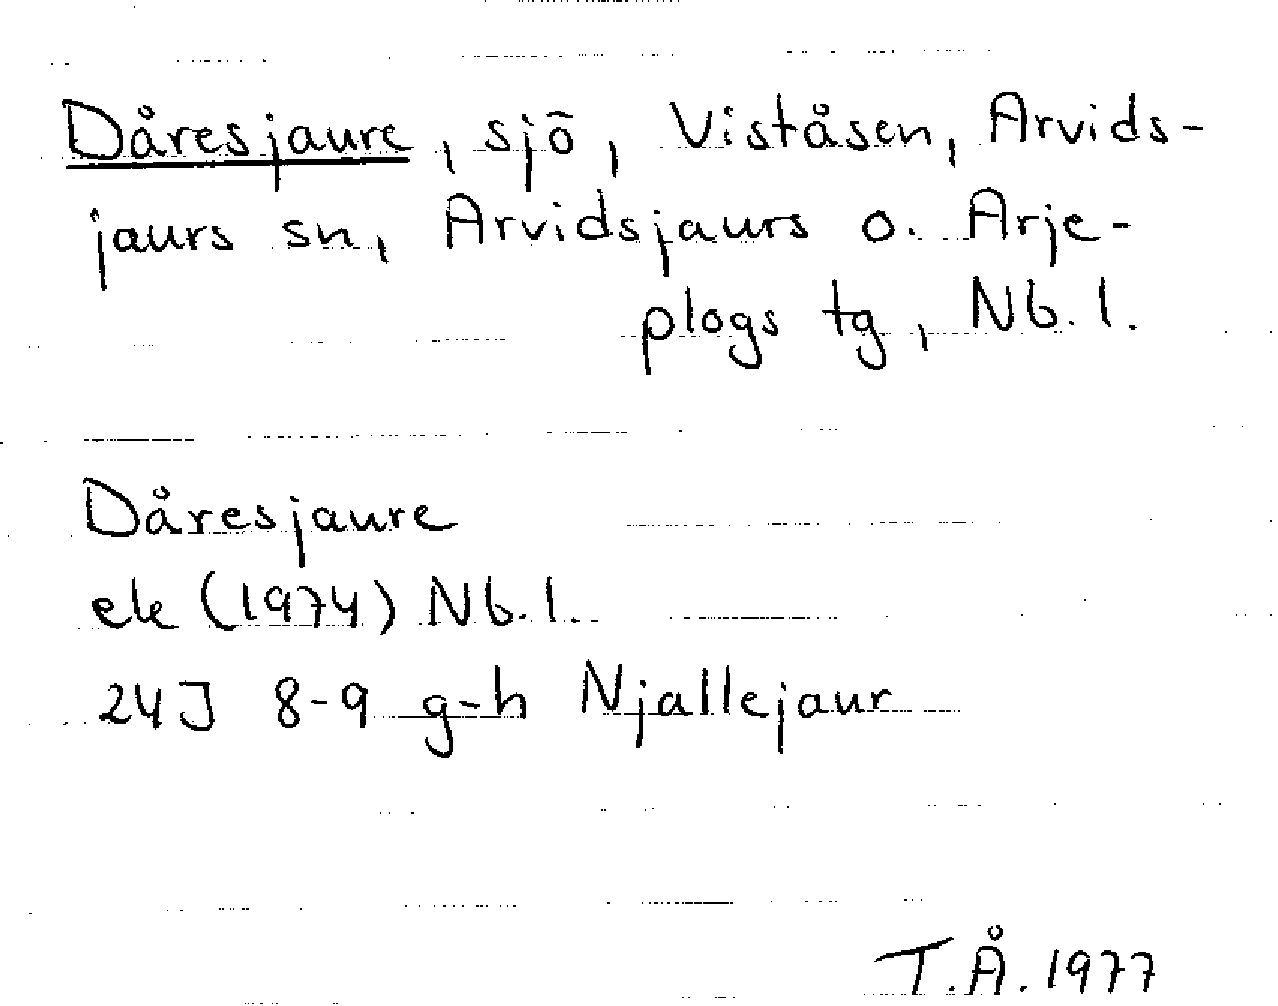 Dåresjaure, sjö, Viståsen, Arvids-
jaurs sn, Arvidsjaurs o. Arje-
plogs tg, Nb. l.
Dåresjaure
ek (1974) Nb. l.
24J 8-9 g-h Njallejaur
T.Å. 1977